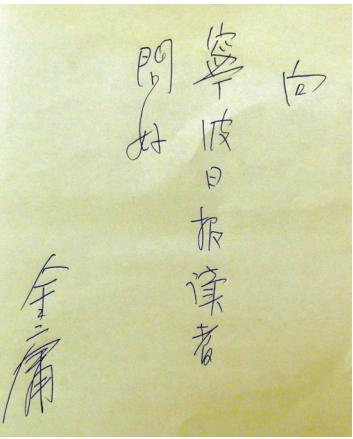 向
寧波日报读者
問好
金庸